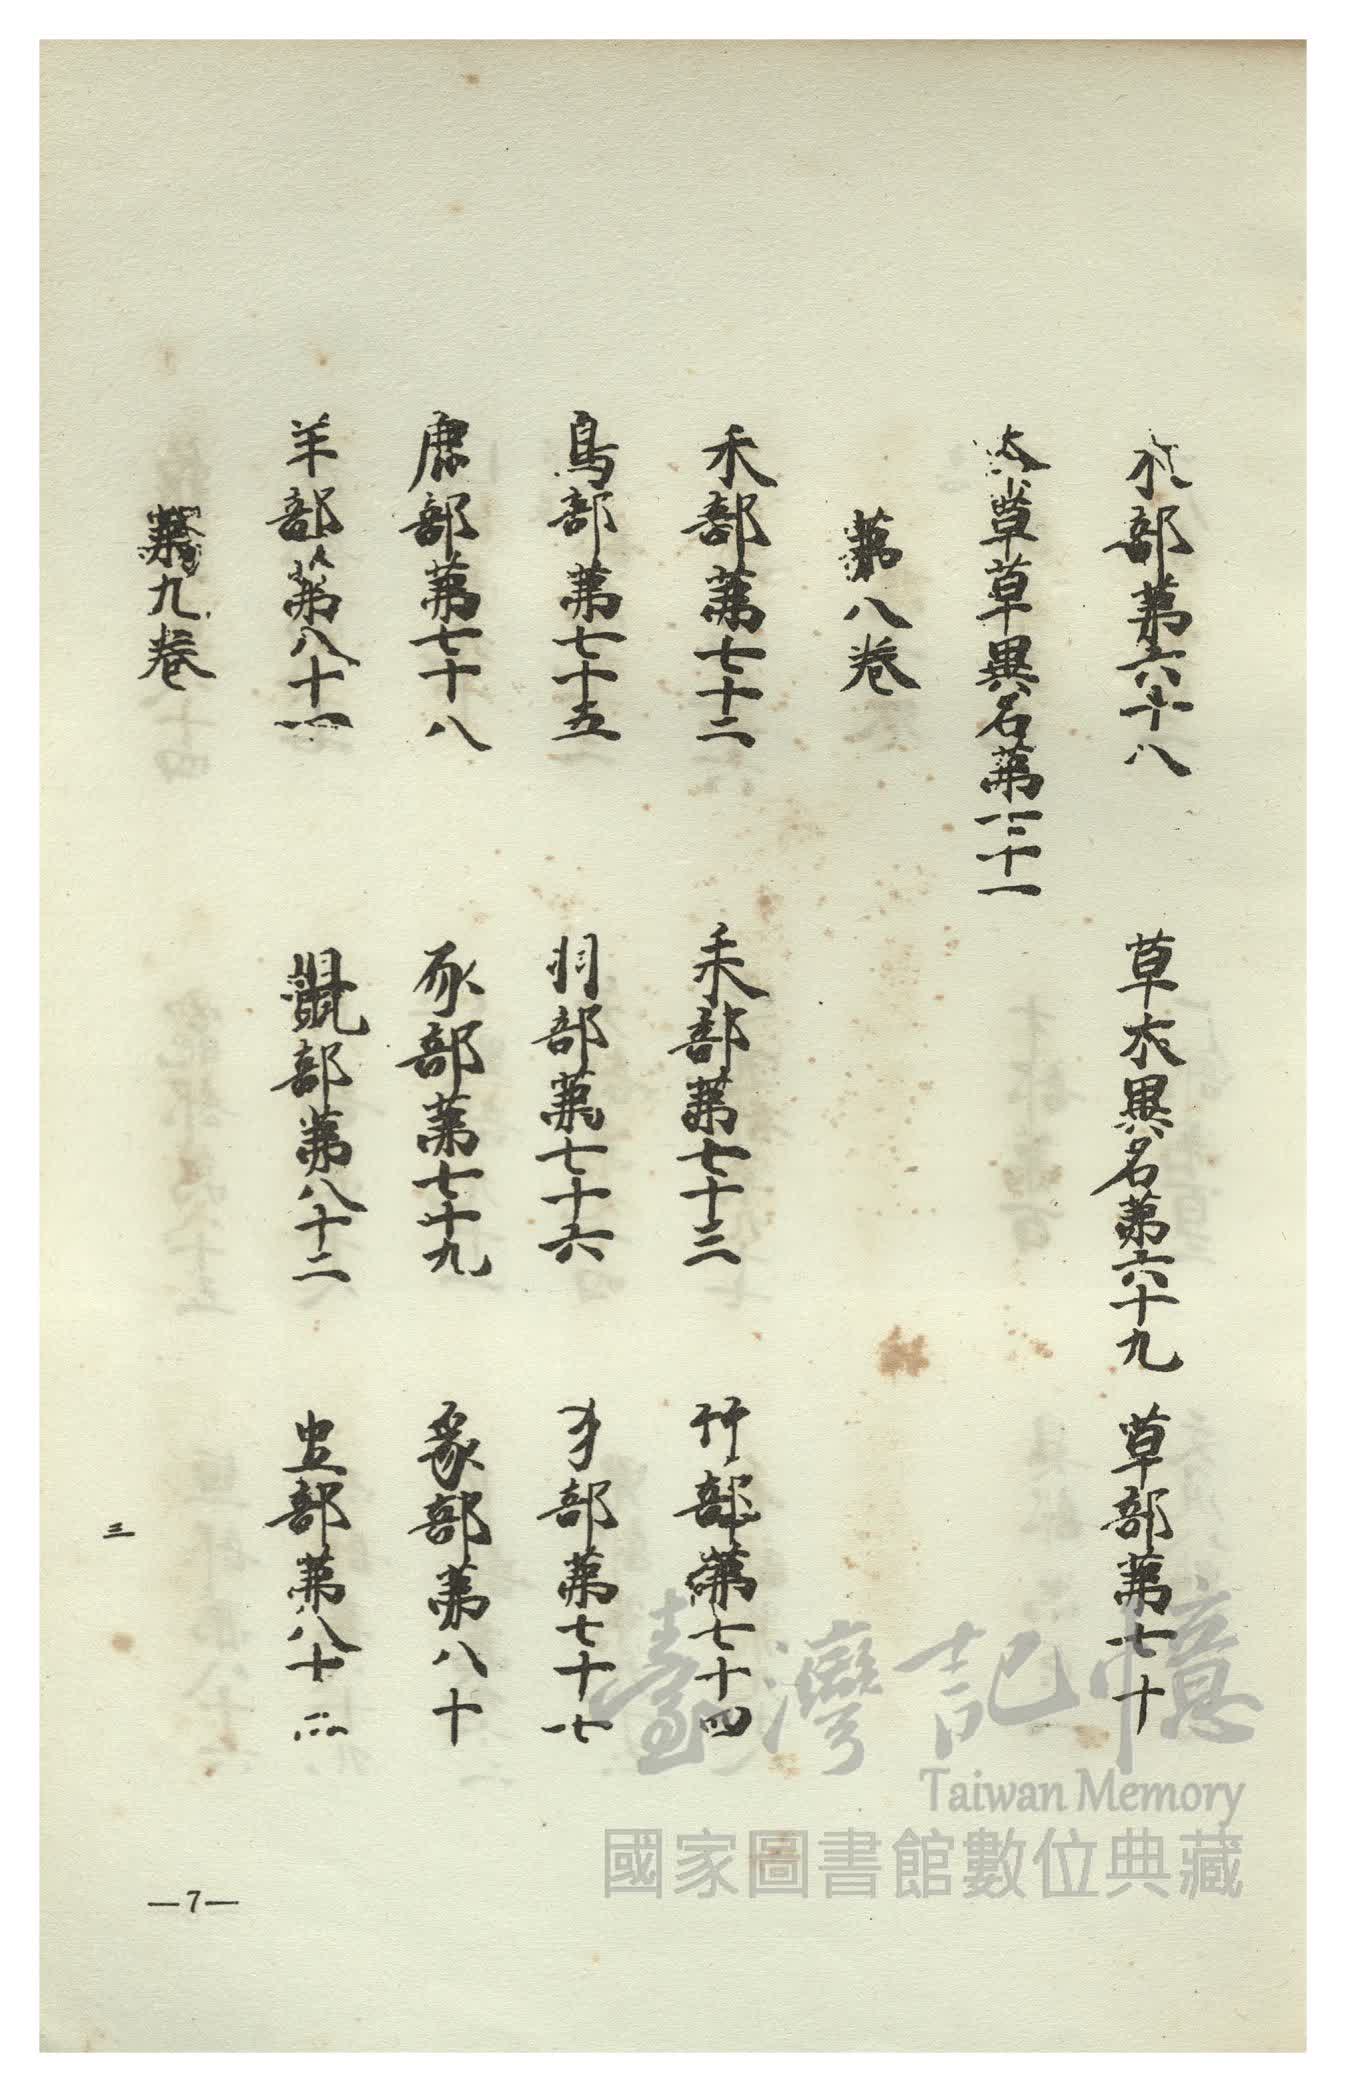 木部第六十八　草木異名第六十九　草部第七十
本草草異名第七十一
第八卷
禾部第七十二　耒部第七十三　竹部第七十四
鳥部第七十五　羽部第七十六　犭部第七十七
鹿部第七十八　豕部第七十九　象部第八十
羊部第八十一　鼠部第八十二　虫部第八十三
第九卷
三
—7—
臺灣記憶
Taiwan Memory
國家圖書館數位典藏